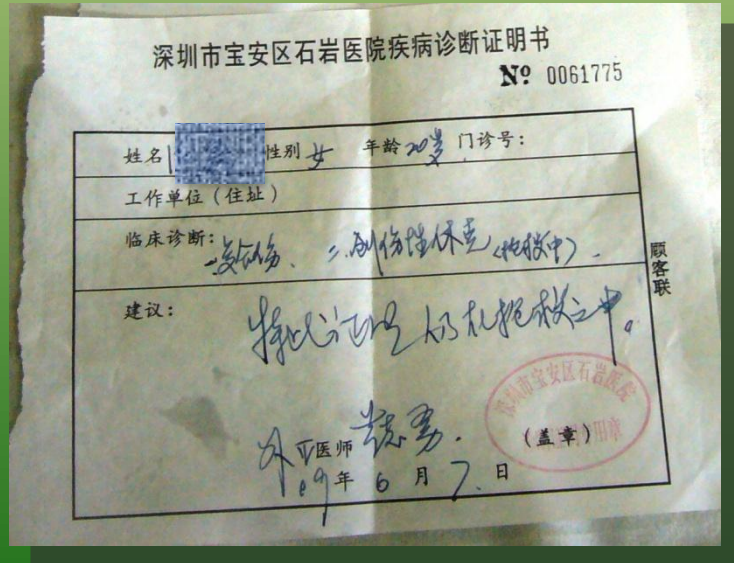 深圳市宝安区石岩医院疾病诊断证明书
Nº 0061775
姓名 性别 女 年龄 20岁 门诊号：
工作单位（住址）
临床诊断：
一、复合伤、二、创伤性休克（抢救中）.
顾客联
建议：
特此证明 仍在抢救之中。
深圳市宝安区石岩医院
外 医师
（盖章）
09年6月7.日